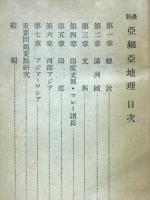 最新 亞細亞地理 目次
第一章 總說
第二章 滿洲國
第三章 支那
第四章 印度支那・マレー諸島
第五章 印度
第六章 西部アジア
第七章 アジア・ロシア
重要問題要點研究
結編